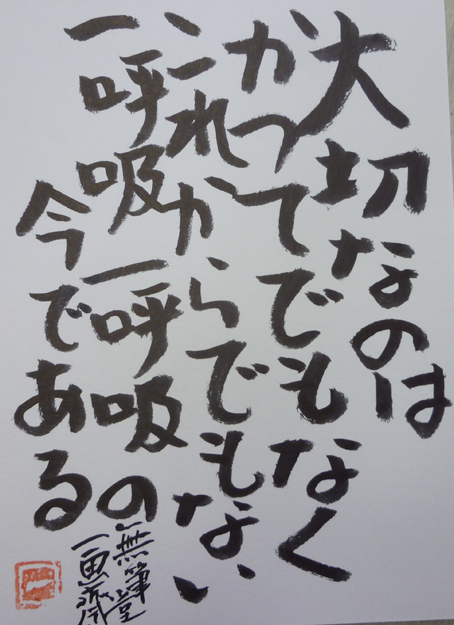 大切なのは
かつてでもなく
これからでもない
一呼吸一呼吸の
今である
無筆堂